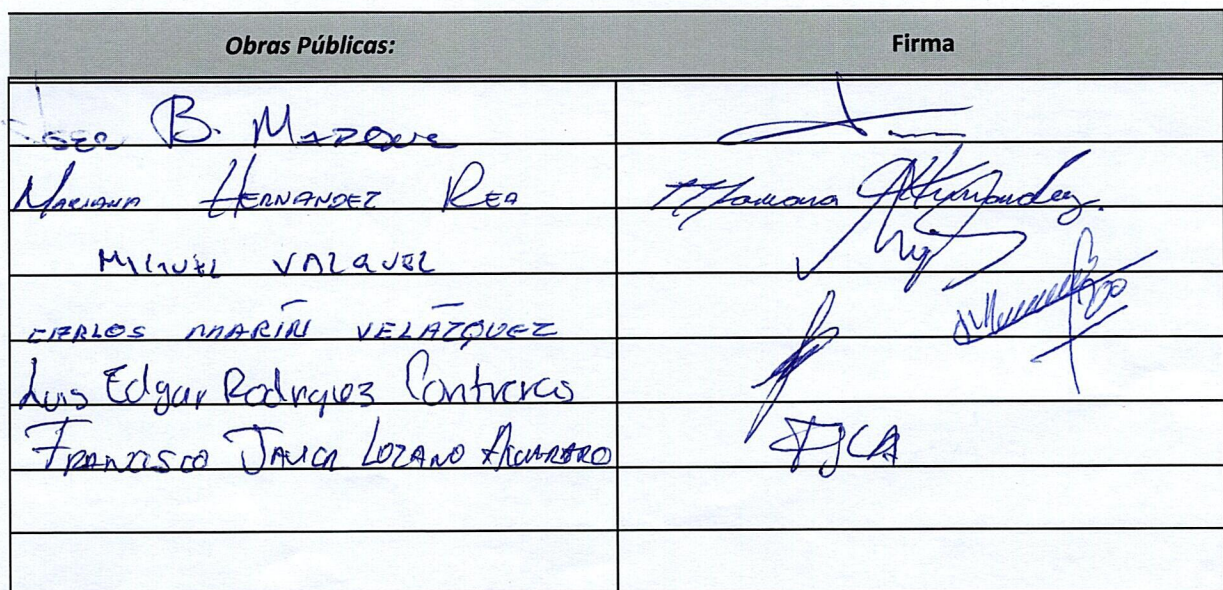 Obras Públicas: Firma
B.
MARIANA HERNANDEZ REA Mariana Hernandez.
MIGUEL VAZQUEZ
CARLOS MARÍN VELÁZQUEZ
Luis Edgar Rodriguez Contreras
FRANCISCO JAVIER LOZANO